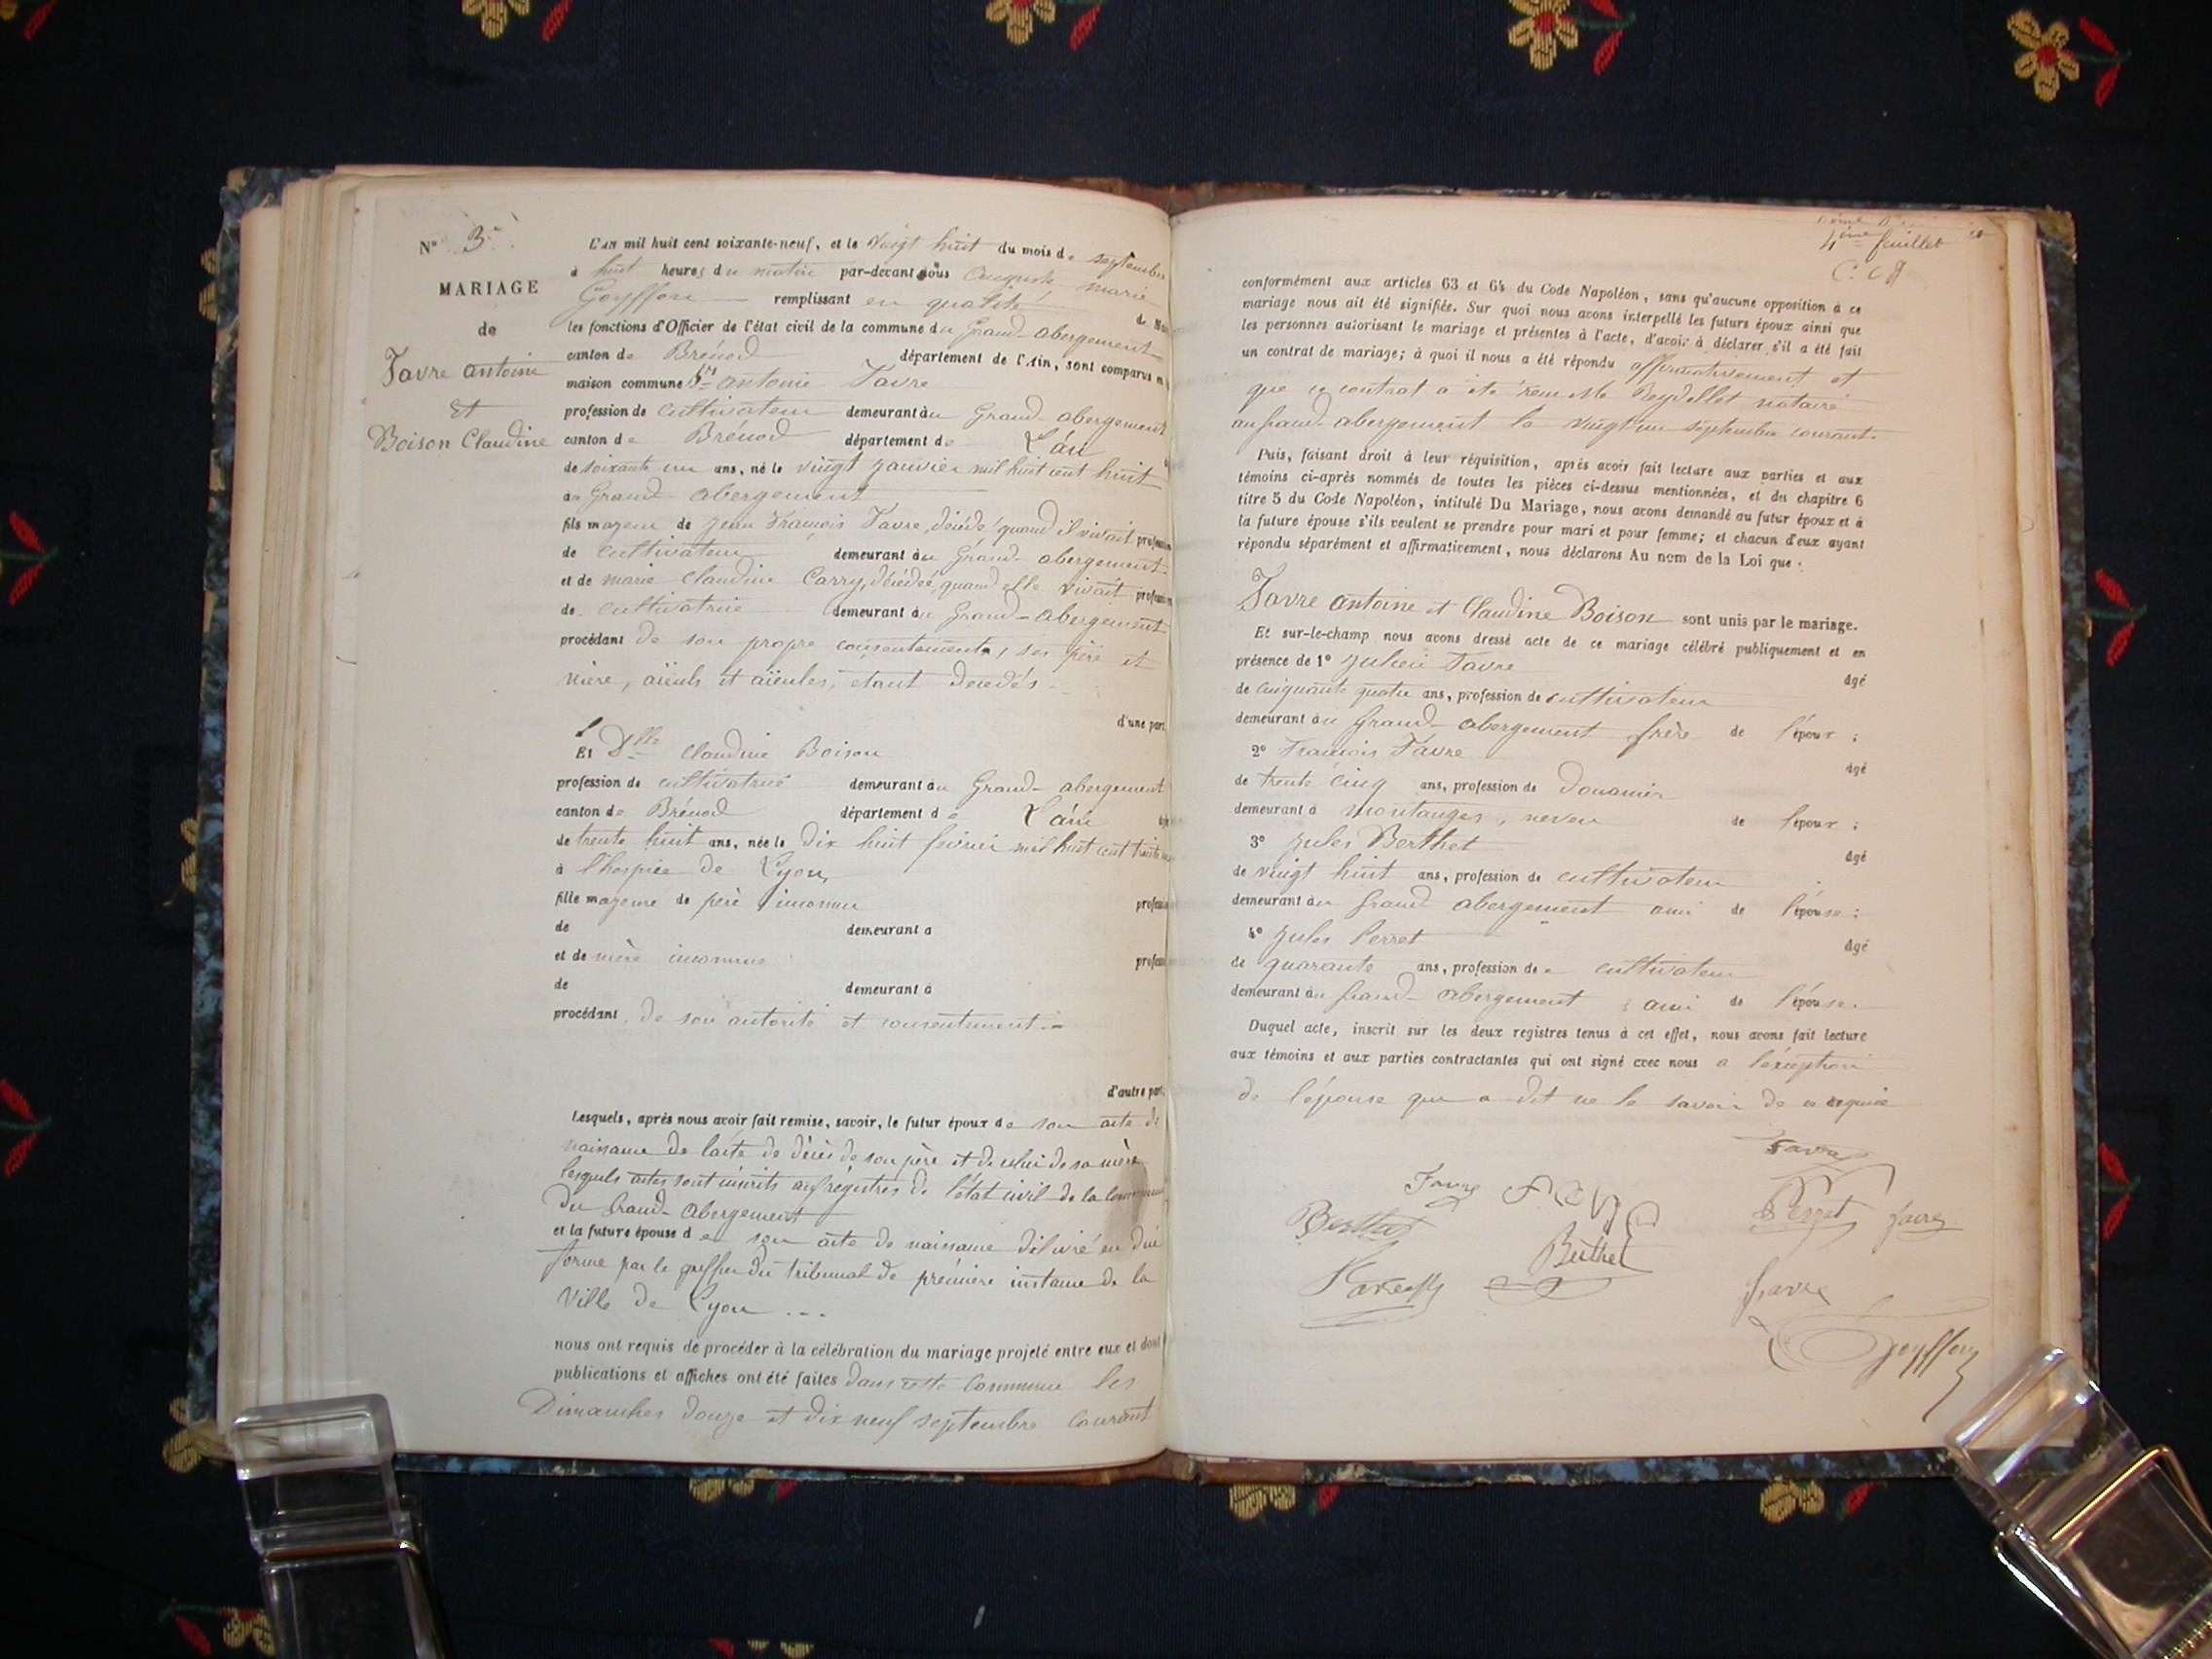 N° 3
MARIAGE
de
Favre Antoine
et
Boison Claudine
L'an mil huit cent soixante-neuf, et le vingt huit du mois de septembre
à huit heures du matin par-devant nous Auguste Marie
Goyffon remplissant en qualité de
les fonctions d'Officier de l'état civil de la commune du Grand-abergement
canton de Brénod département de l'Ain, sont comparus en
maison commune Sr antoine Favre
profession de cultivateur demeurant au Grand abergement
canton de Brénod département de L'ain
de soixante un ans, né le vingt janvier mil huit cent huit
au Grand-abergement
fils majeur de jean François Favre, décédé, quand il vivait profession
de cultivateur demeurant au Grand-abergement
et de marie Claudine Carry, décédée, quand elle vivait profession
de cultivatrice demeurant au Grand-abergement
procédant de son propre consentement, ses père et
mère, aïeuls et aïeules, étant décédés
d'une part
Et Dlle Claudine Boison
profession de cultivatrice demeurant au Grand-abergement
canton de Brénod département de L'ain
de trente huit ans, née le dix huit février mil huit cent trente
à l'hospice de Lyon
fille majeure de père inconnu profession
de demeurant à
et de mère inconnue profession
de demeurant à
procédant de son autorité et consentement
d'autre part
Lesquels, après nous avoir fait remise, savoir, le futur époux de son acte de
naissance de l'acte de décès de son père et de celui de sa mère
lesquels actes sont inscrits aux régistres de l'état civil de la commune
du Grand-Abergement
et la future épouse de son acte de naissance délivré en due
forme par le greffier du tribunal de première instance de la
Ville de Lyon ...
nous ont requis de procéder à la célébration du mariage projeté entre eux et dont
publications et affiches ont été faites dans cette Commune les
Dimanches douze et dix neuf septembre courant
4ème feuillet
conformément aux articles 63 et 64 du Code Napoléon, sans qu'aucune opposition à ce
mariage nous ait été signifiée. Sur quoi nous avons interpellé les futurs époux ainsi que
les personnes autorisant le mariage et présentes à l'acte, d'avoir à déclarer s'il a été fait
un contrat de mariage; à quoi il nous a été répondu affirmativement et
que ce contrat a été reçu Me Reydellet notaire
au Grand-abergement le vingt un septembre courant.
Puis, faisant droit à leur réquisition, après avoir fait lecture aux parties et aux
témoins ci-après nommés de toutes les pièces ci-dessus mentionnées, et du chapitre 6
titre 5 du Code Napoléon, intitulé Du Mariage, nous avons demandé au futur époux et à
la future épouse s'ils veulent se prendre pour mari et pour femme; et chacun d'eux ayant
répondu séparément et affirmativement, nous déclarons Au nom de la Loi que :
Favre antoine et Claudine Boison sont unis par le mariage.
Et sur-le-champ nous avons dressé acte de ce mariage célébré publiquement et en
présence de 1° julien Favre âgé
de cinquante quatre ans, profession de cultivateur
demeurant au Grand abergement frère de l'époux ;
2° François Favre âgé
de trente cinq ans, profession de Douanier
demeurant à Montanges, neveu de l'époux ;
3° jules Berthet âgé
de vingt huit ans, profession de cultivateur
demeurant au Grand abergement ami de l'épouse ;
4° jules Perret âgé
de quarante ans, profession de cultivateur
demeurant au Grand-abergement ami de l'épouse.
Duquel acte, inscrit sur les deux registres tenus à cet effet, nous avons fait lecture
aux témoins et aux parties contractantes qui ont signé avec nous a l'exception
de l'épouse qui a dit ne le savoir de ce requise
Favre
Favre FAVRE Perret favre
Berthet Berthet
Favre
Goyffon